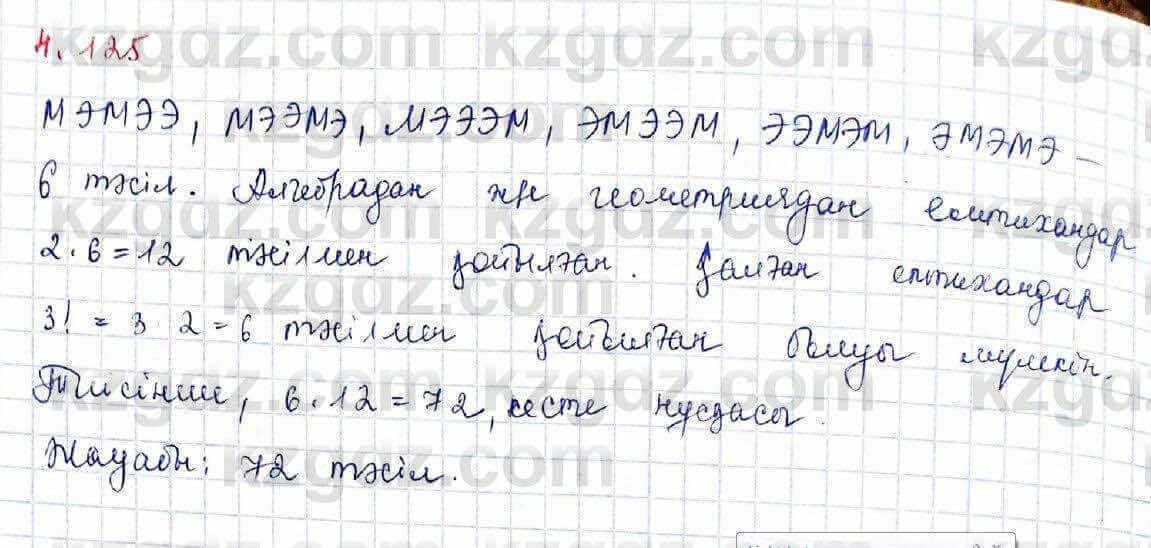 4.125
МЭМЭЭ, МЭЭМЭ, МЭЭЭМ, ЭМЭЭМ, ЭЭМЭМ, ЭМЭМЭ –
6 тәсіл. Алгебрадан және геометриядан емтихандар
2·6=12 тәсілмен қойылған. Қалған емтихандар
3! = 3·2=6 тәсілмен қойылған болуы мүмкін.
Тиісінше, 6·12=72, кесте нұсқасы.
Жауабы: 72 тәсіл.
kzgdz.com